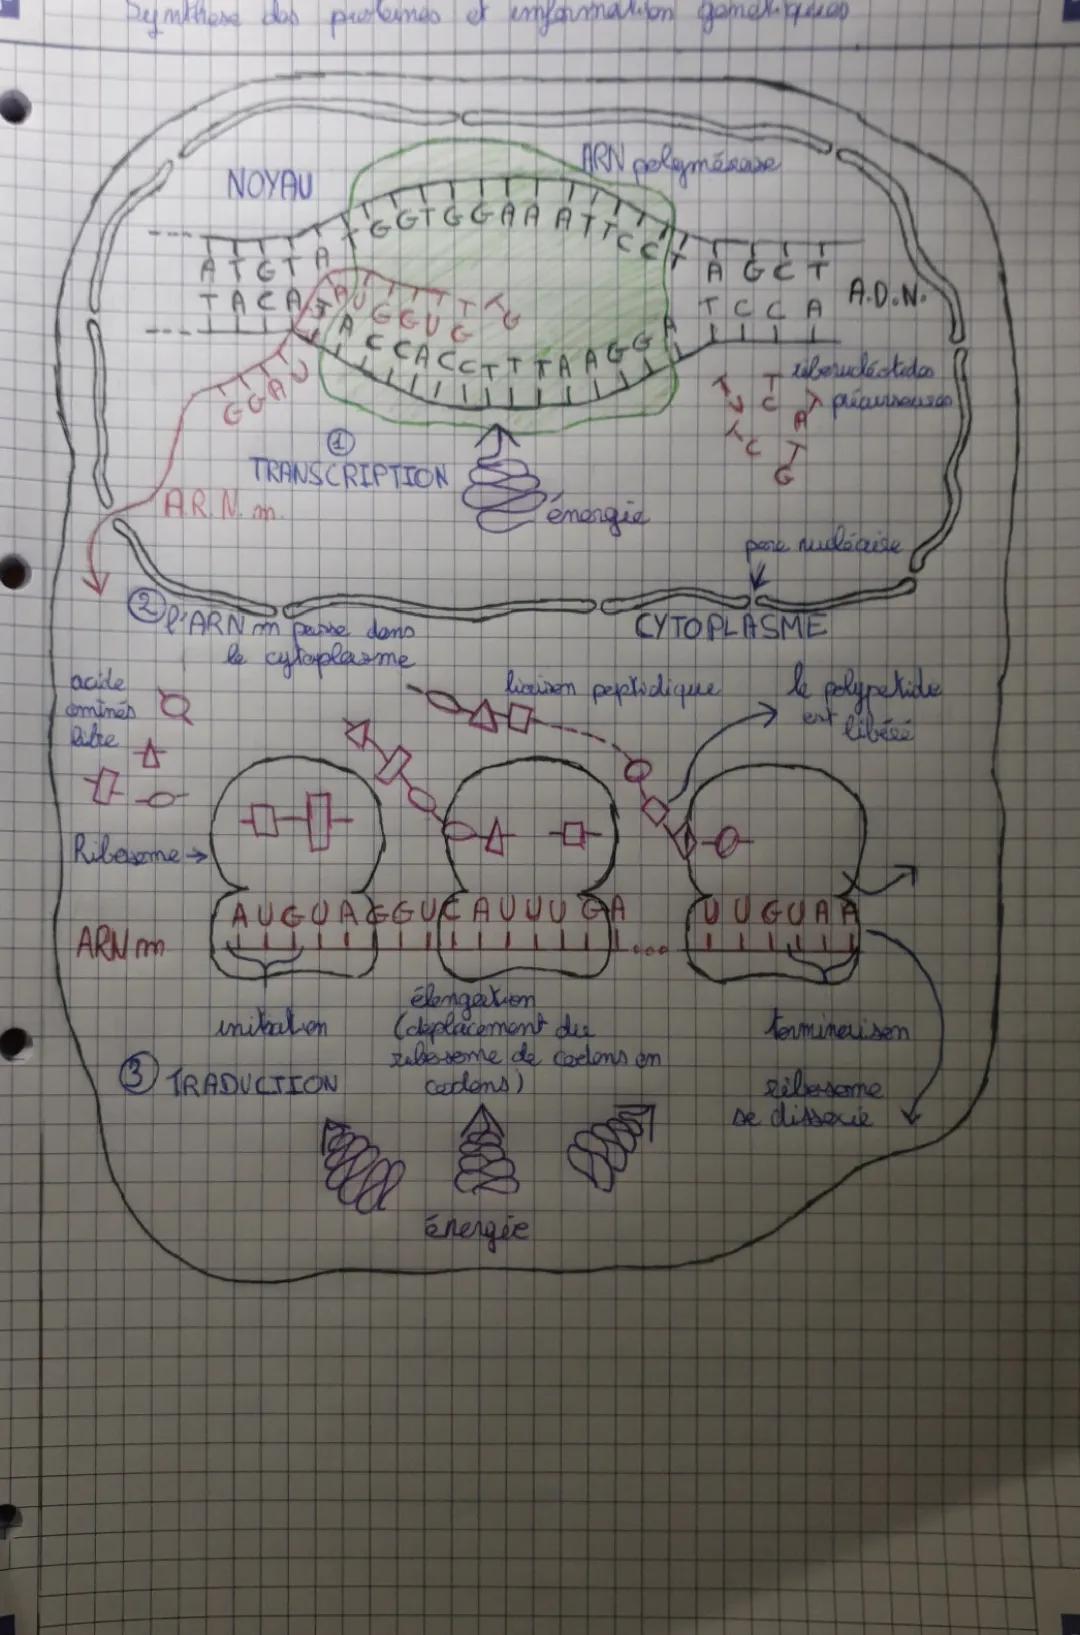 Synthèse des protéines et information génétiques
NOYAU
ARN polymérase
G G T G G A A A T T C C
A T G T A
A G C T
A.D.N.
T A C A T
A U G G U G
T C C A
A C C A C C T T T A A G G
G G A U
ribonucléotides
précurseurs
T U C
T C
A
T G
①
TRANSCRIPTION
A.R.N. m.
énergie
pore nucléaire
② l'ARN m passe dans
le cytoplasme
CYTOPLASME
acide
aminés
libre
liaison peptidique
le polypeptide
est libéré
Ribosome
ARN m
A U G U A G G U C A U U U G A ... U U G U A A
initiation
élongation
(déplacement du
ribosome de codons en
codons)
terminaison
③ TRADUCTION
ribosome
se dissocie
énergie